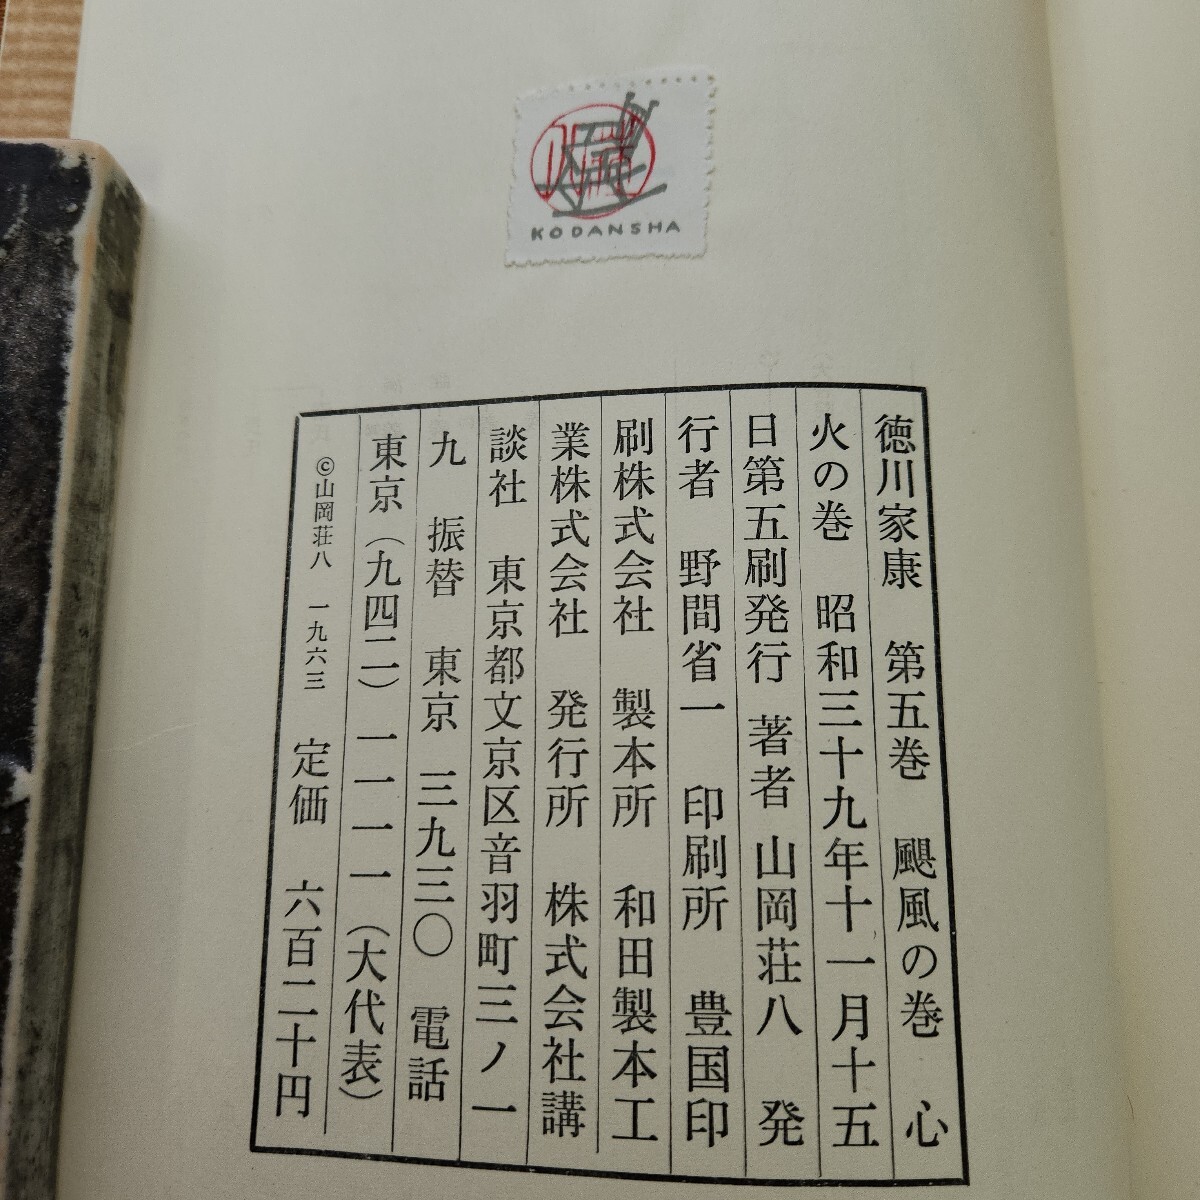 KODANSHA
徳川家康　第五巻　颶風の巻　心
火の巻　昭和三十九年十一月十五
日第五刷発行　著者　山岡荘八　発
行者　野間省一　印刷所　豊国印
刷株式会社　製本所　和田製本工
業株式会社　発行所　株式会社講
談社　東京都文京区音羽町三ノ一
九　振替　東京　三九三〇　電話
東京（九四二）一一一一（大代表）
©山岡荘八　一九六三　定価　六百二十円